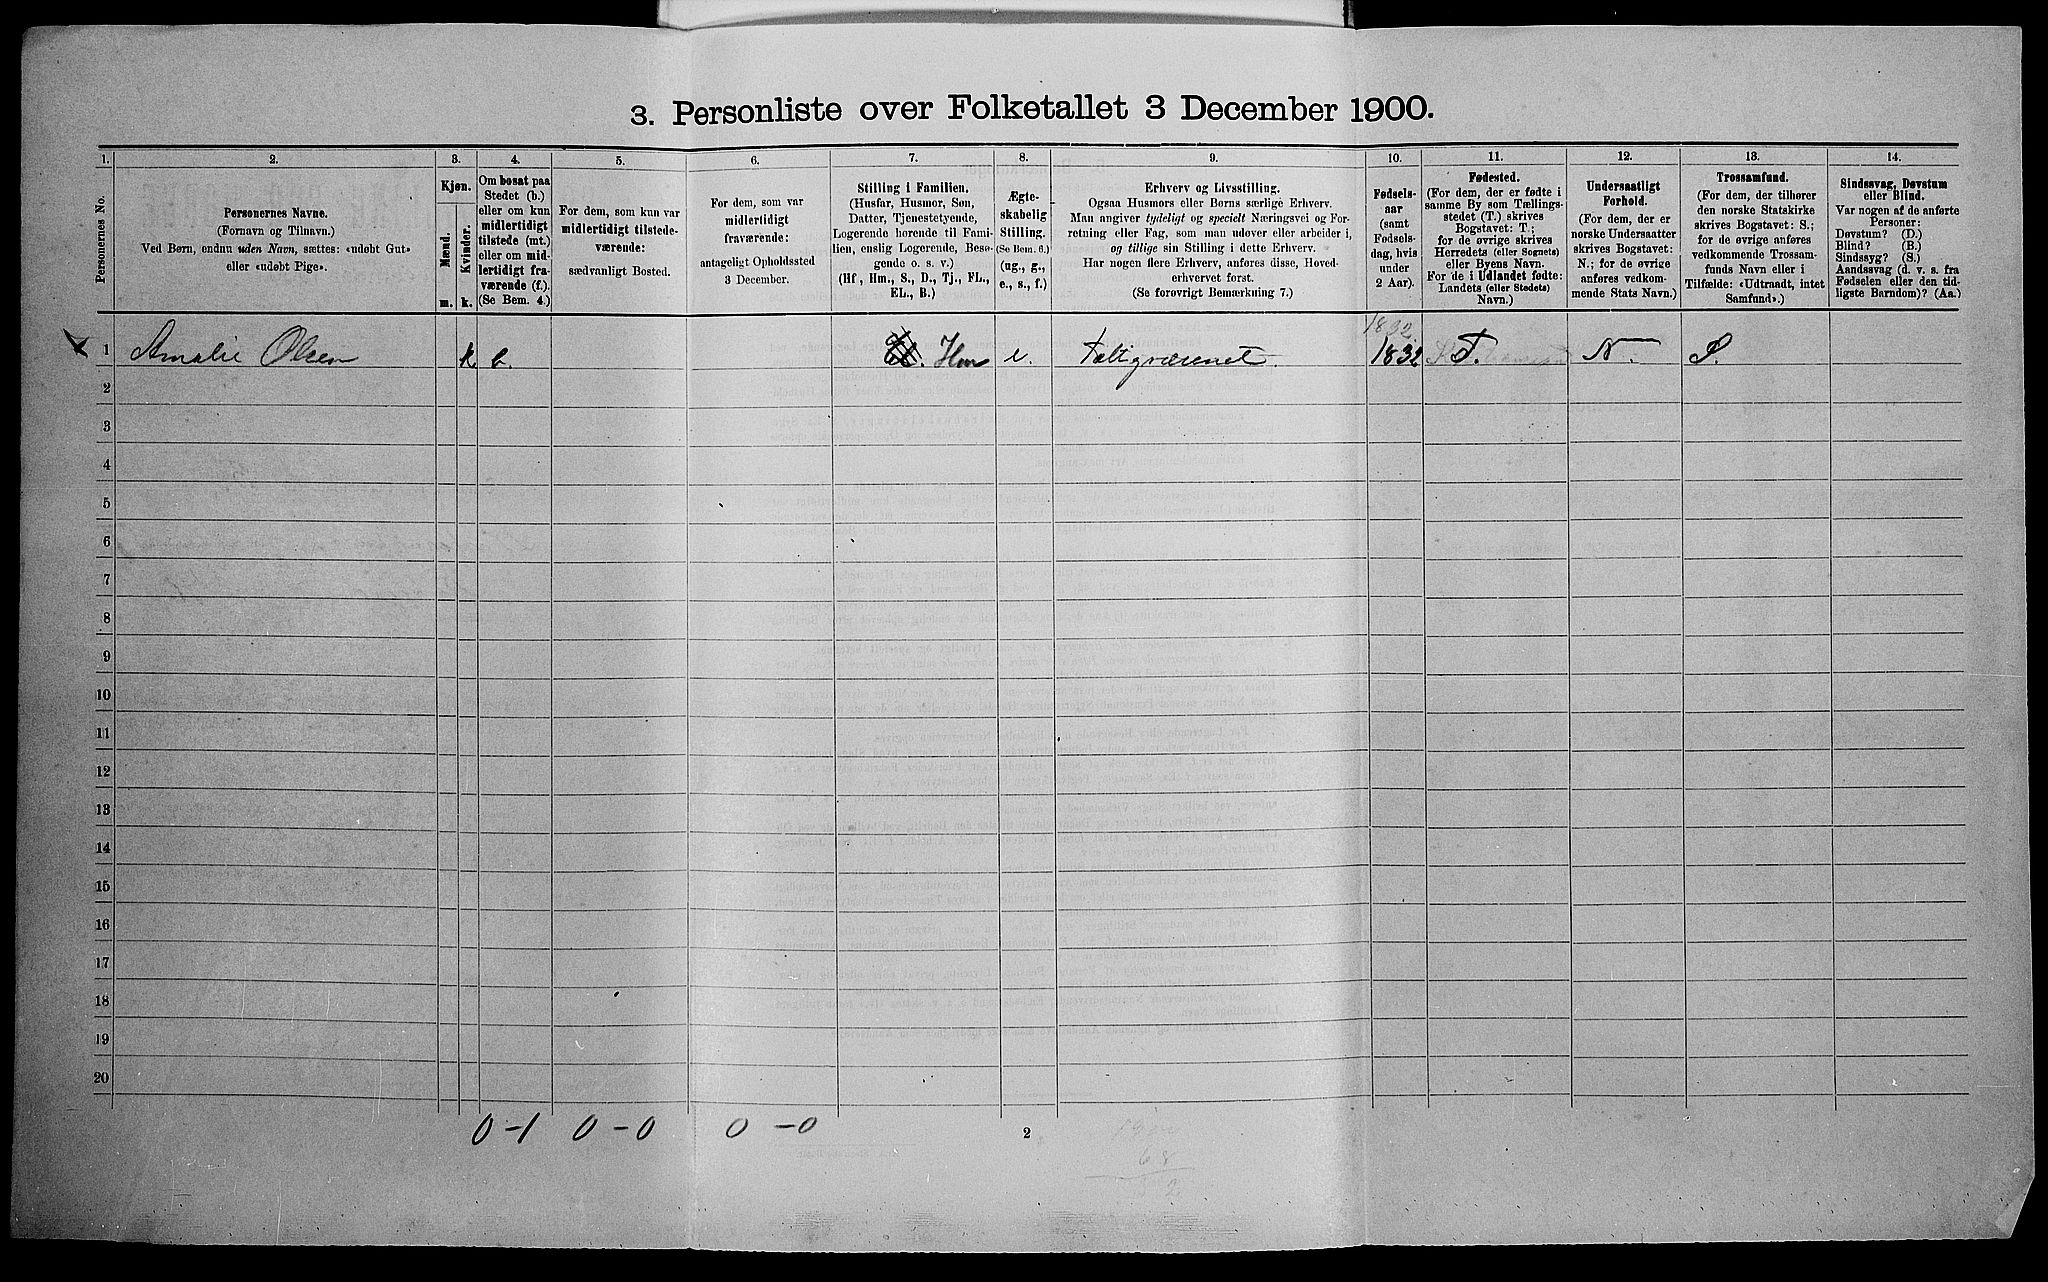 3. Personliste over Folketallet 3 December 1900.
1. 2. 3. 4. 5. 6. 7. 8. 9. 10. 11. 12. 13. 14.
Personernes No.
Personernes Navne.
(Fornavn og Tilnavn.)
Ved Børn, endnu uden Navn, sættes: «udøbt Gut»
eller «udøbt Pige».
Kjøn.
Mænd.
Kvinder.
m. k.
Om bosat paa
Stedet (b.)
eller om kun
midlertidigt
tilstede (mt.)
eller om mid-
lertidigt fra-
værende (f.).
(Se Bem. 4.)
For dem, som kun var
midlertidigt tilstede-
værende:
sædvanligt Bosted.
For dem, som var
midlertidigt
fraværende:
antageligt Opholdssted
3 December.
Stilling i Familien.
(Husfar, Husmor, Søn,
Datter, Tjenestetyende,
Logerende hørende til Fami-
lien, enslig Logerende, Besø-
gende o. s. v.)
(Hf, Hm., S., D., Tj., FL.,
EL., B.)
Ægte-
skabelig
Stilling.
(Se Bem. 6.)
(ug., g.,
e., s., f.)
Erhverv og Livsstilling.
Ogsaa Husmors eller Børns særlige Erhverv.
Man angiver tydeligt og specielt Næringsvei og For-
retning eller Fag, som man udøver eller arbeider i,
og tillige sin Stilling i dette Erhverv.
Har nogen flere Erhverv, anføres disse, Hoved-
erhvervet først.
(Se forøvrigt Bemærkning 7.)
Fødsels-
aar
(samt
Fødsels-
dag, hvis
under
2 Aar).
Fødested.
(For dem, der er fødte i
samme By som Tællings-
stedet (T.) skrives
Bogstavet: T.;
for de øvrige skrives
Herredets (eller Sognets)
eller Byens Navn.
For de i Udlandet fødte:
Landets (eller Stedets)
Navn.)
Undersaatligt
Forhold.
(For dem, der er
norske Undersaatter
skrives Bogstavet:
N.; for de øvrige
anføres vedkom-
mende Stats Navn.)
Trossamfund.
(For dem, der tilhører
den norske Statskirke
skrives Bogstavet: S.;
for de øvrige anføres
vedkommende Trossam-
funds Navn eller i
Tilfælde: «Udtraadt, intet
Samfund».)
Sindssvag, Døvstum
eller Blind.
Var nogen af de anførte
Personer:
Døvstum? (D.)
Blind? (B.)
Sindssyg? (S.)
Aandssvag (d. v. s. fra
Fødselen eller den tid-
ligste Barndom)? (Aa.)
1832
1 Amalie Olsen k b. Hm e. Fattigvæsenet. 1832 T. N. S.
2
3
4
5
6
7
8
9
10
11
12
13
14
15
16
17
18
19
20
0-1 0-0 0-0
2
68
2